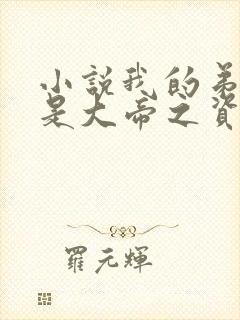 小說我的弟
是大帝之資
羅元輝